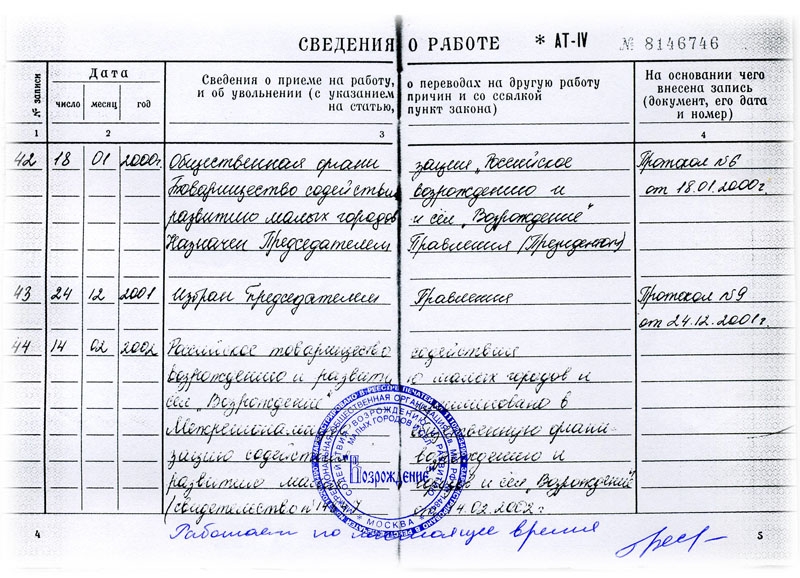 СВЕДЕНИЯ О РАБОТЕ * АТ-IV № 8146746
№ записи
Дата
число месяц год
Сведения о приеме на работу, о переводах на другую работу
и об увольнении (с указанием причин и со ссылкой
на статью, пункт закона)
На основании чего
внесена запись
(документ, его дата
и номер)
1 2 3 4
42 18 01 2000г. Общественная органи зация „Российское Протокол №6
Товарищество содействия возрождению и от 18.01.2000г.
развитию малых городов и сёл „Возрождение"
Назначен Председателем Правления (Президентом)
43 24 12 2001 Избран Председателем Правления Протокол №9
от 24.12.2001г.
44 14 02 2002 Российское товарищество содействия
возрождению и развитию малых городов и
сёл „Возрождение" в
органи-
зацию содействия возрождению и
развитию и сёл „Возрождение"
14.02.2002г
Возрождение
МОСКВА
4 Работает по настоящее время 5